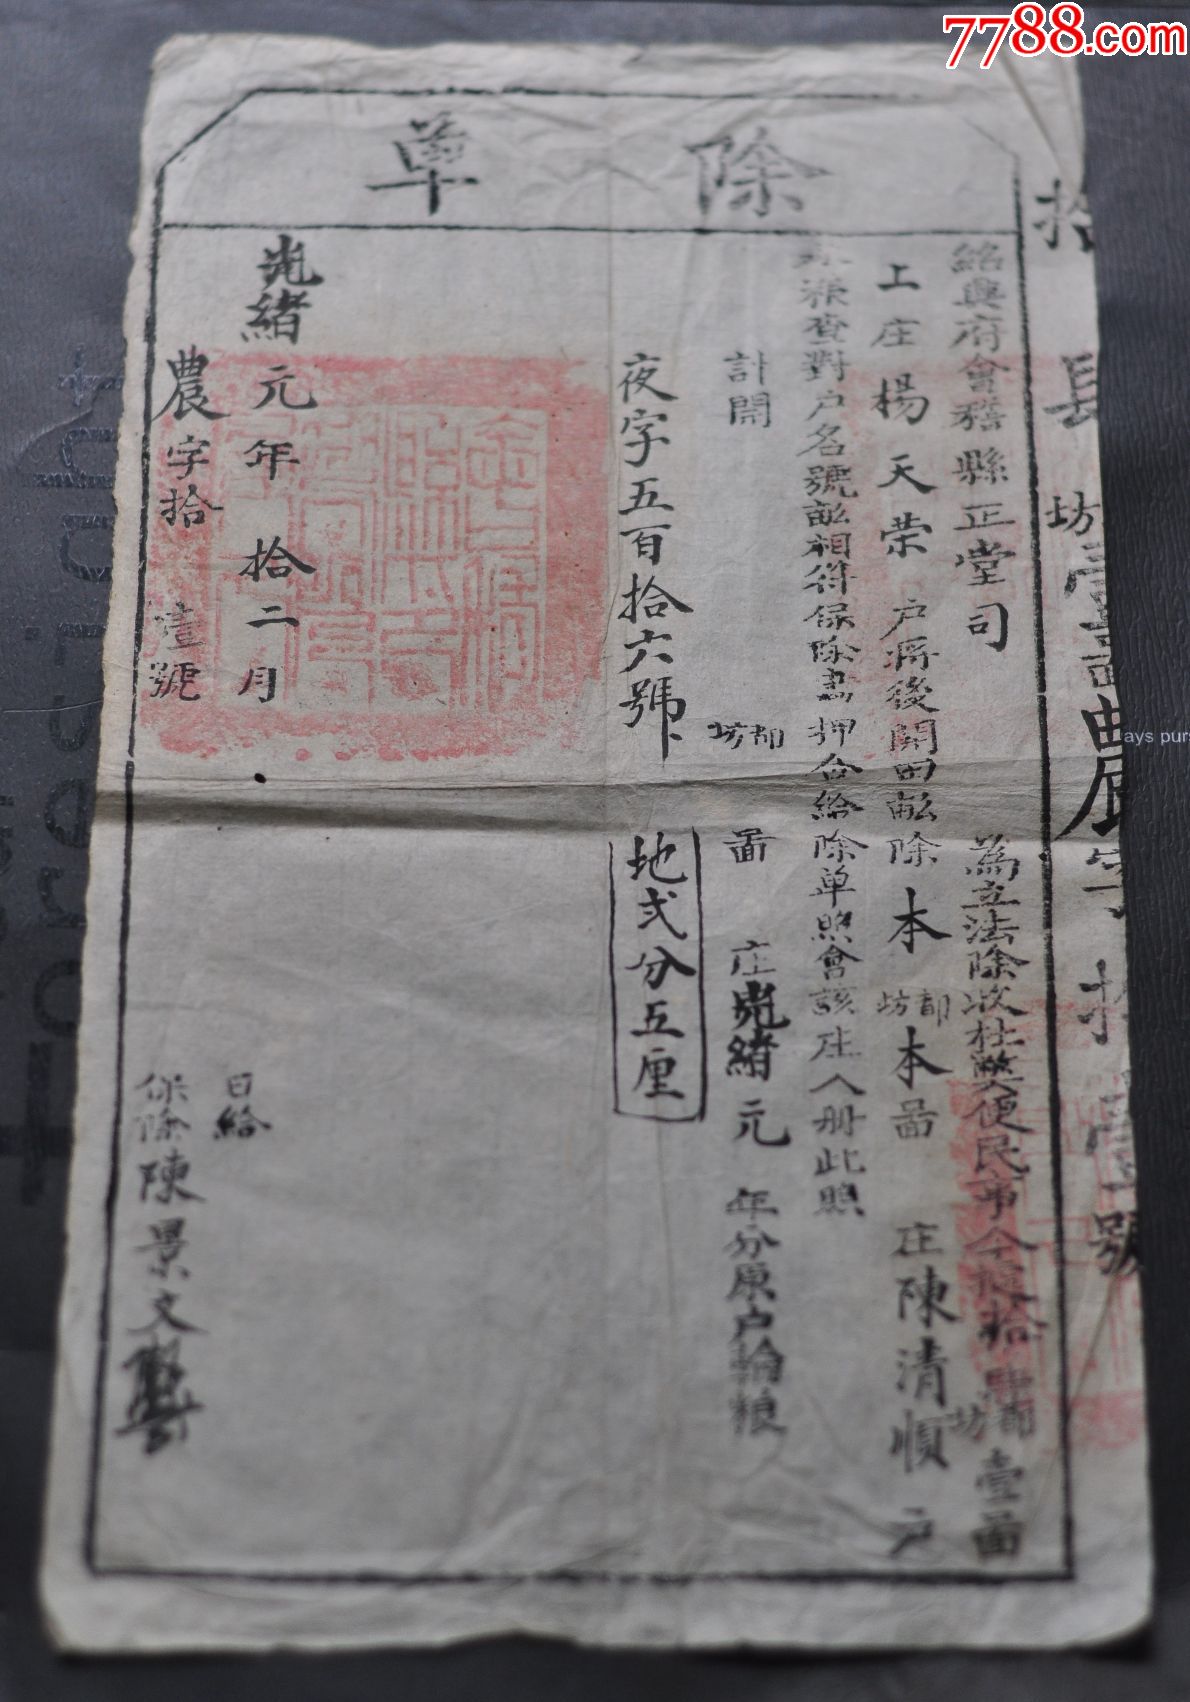 7788.com
除單
紹興府會稽縣正堂司 為立法除收杜獘便民事今據拾 都坊 壹畐
上庄楊天荣 户將後開田畝除本 都坊 本畐 庄陳清順户
糧查對户名號畝相符保除畫押合給除单照會該庄入册此照
計開 都坊 畐 庄光緒元 年分原户輸粮
夜字五百拾六號 地弍分五厘
光緒元年拾二月 日給
農字拾壹號 保除陳景文
ays purs